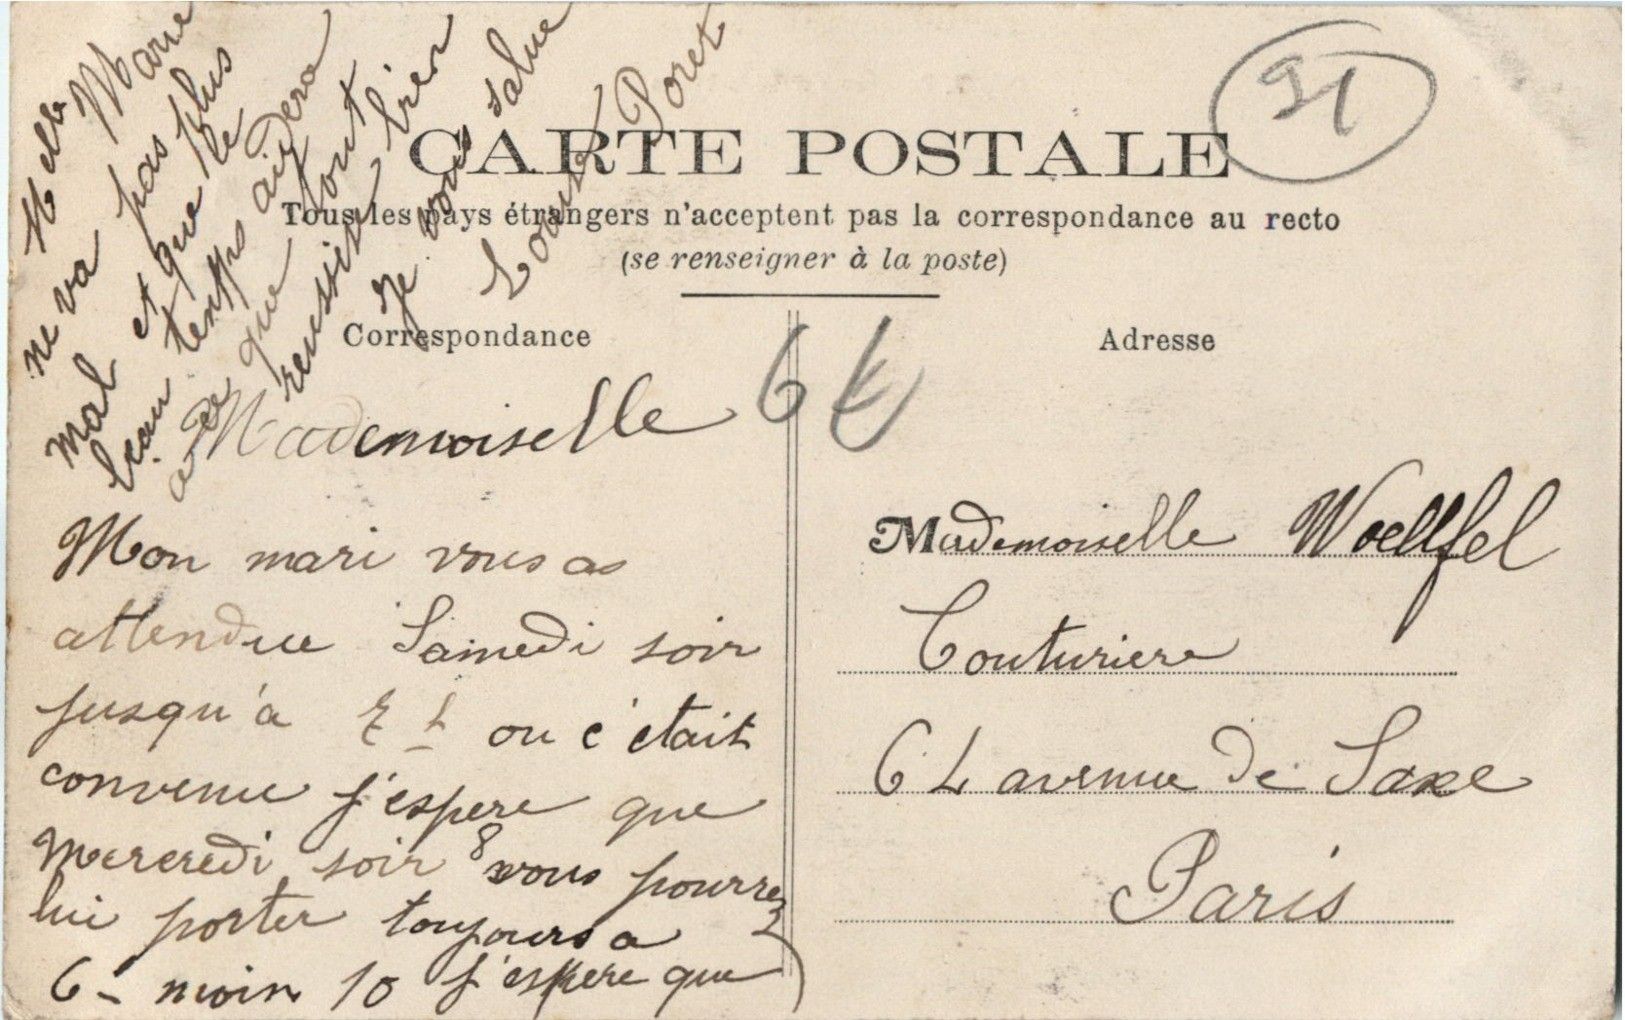 91
CARTE POSTALE
Tous les pays étrangers n'acceptent pas la correspondance au recto
(se renseigner à la poste)
Correspondance
Adresse
Mademoiselle
Mon mari vous as
attendue Samedi soir
jusqu'a 7 h ou c'etait
convenue j'espere que
Mercredi soir 8 vous pourrez
lui porter toujours a
6 - moin 10 j'espere que
Melle Marie
ne va pas plus
mal et que le
beau temps aidera
a ce que tout
reussise bien
Je vous salue
Louise Poret
6 €
Mademoiselle Woellfel
Couturiere
64 avenue de Saxe
Paris